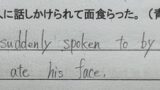 人に話しかけられて面食らった。(青
suddenly spoken to by
ate his face.